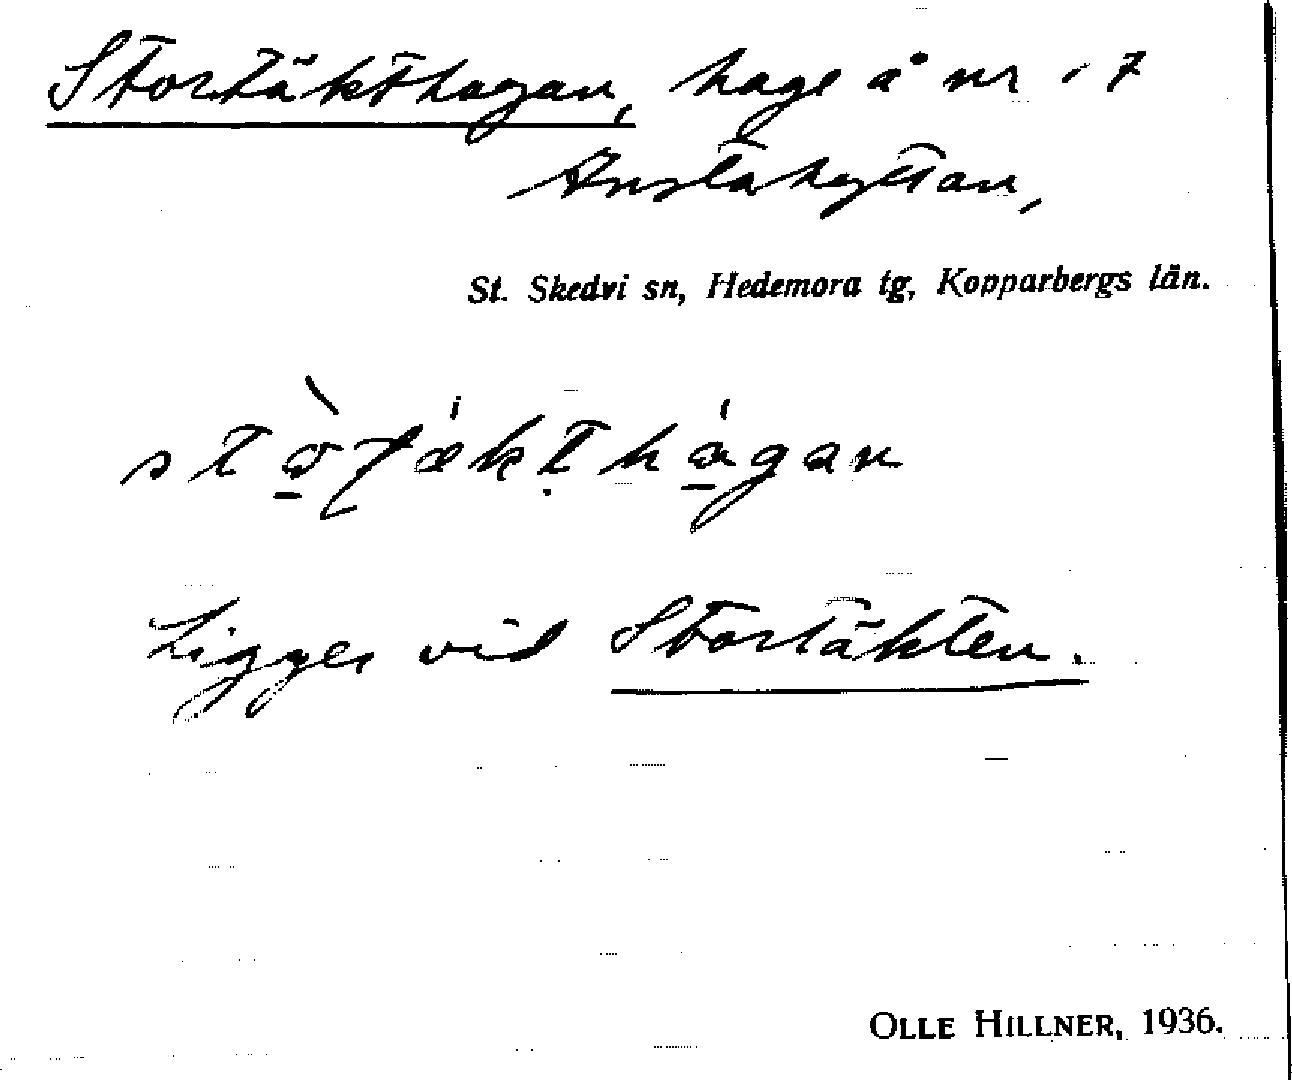 Stortäkthagan, hage å nr 7
Anstahyttan,
St. Skedvi sn, Hedemora tg, Kopparbergs län.
Ligger vid Stortäkten.
OLLE HILLNER, 1936.